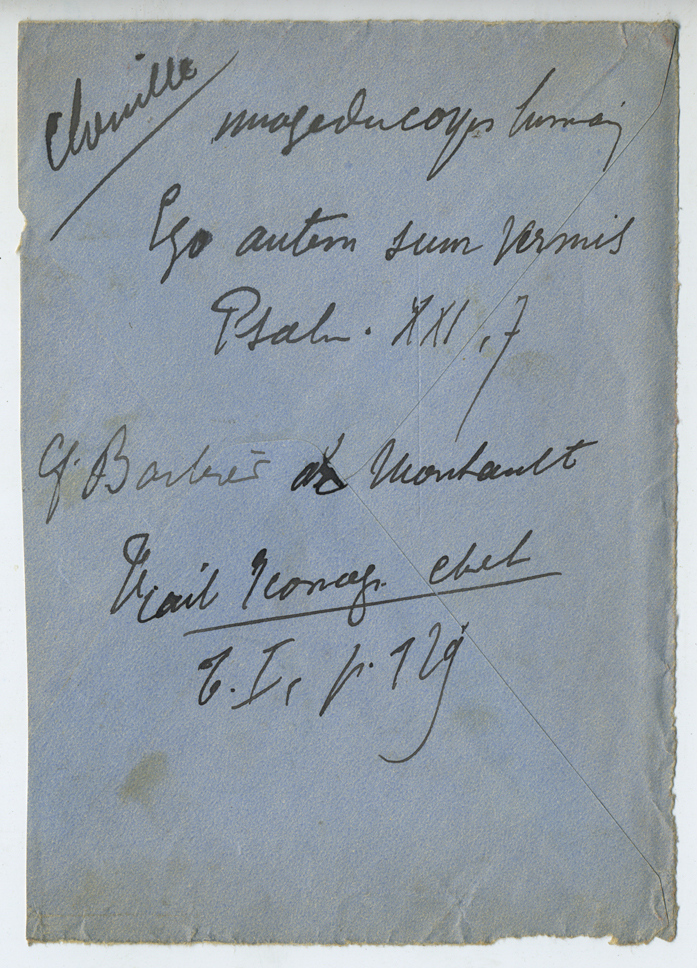 Chenille
image du corps humain
Ego autem sum vermis
Psalm. XXI, 7
Cf. Barbier de Montault
Trait Iconog. chret
t. I, p. 129